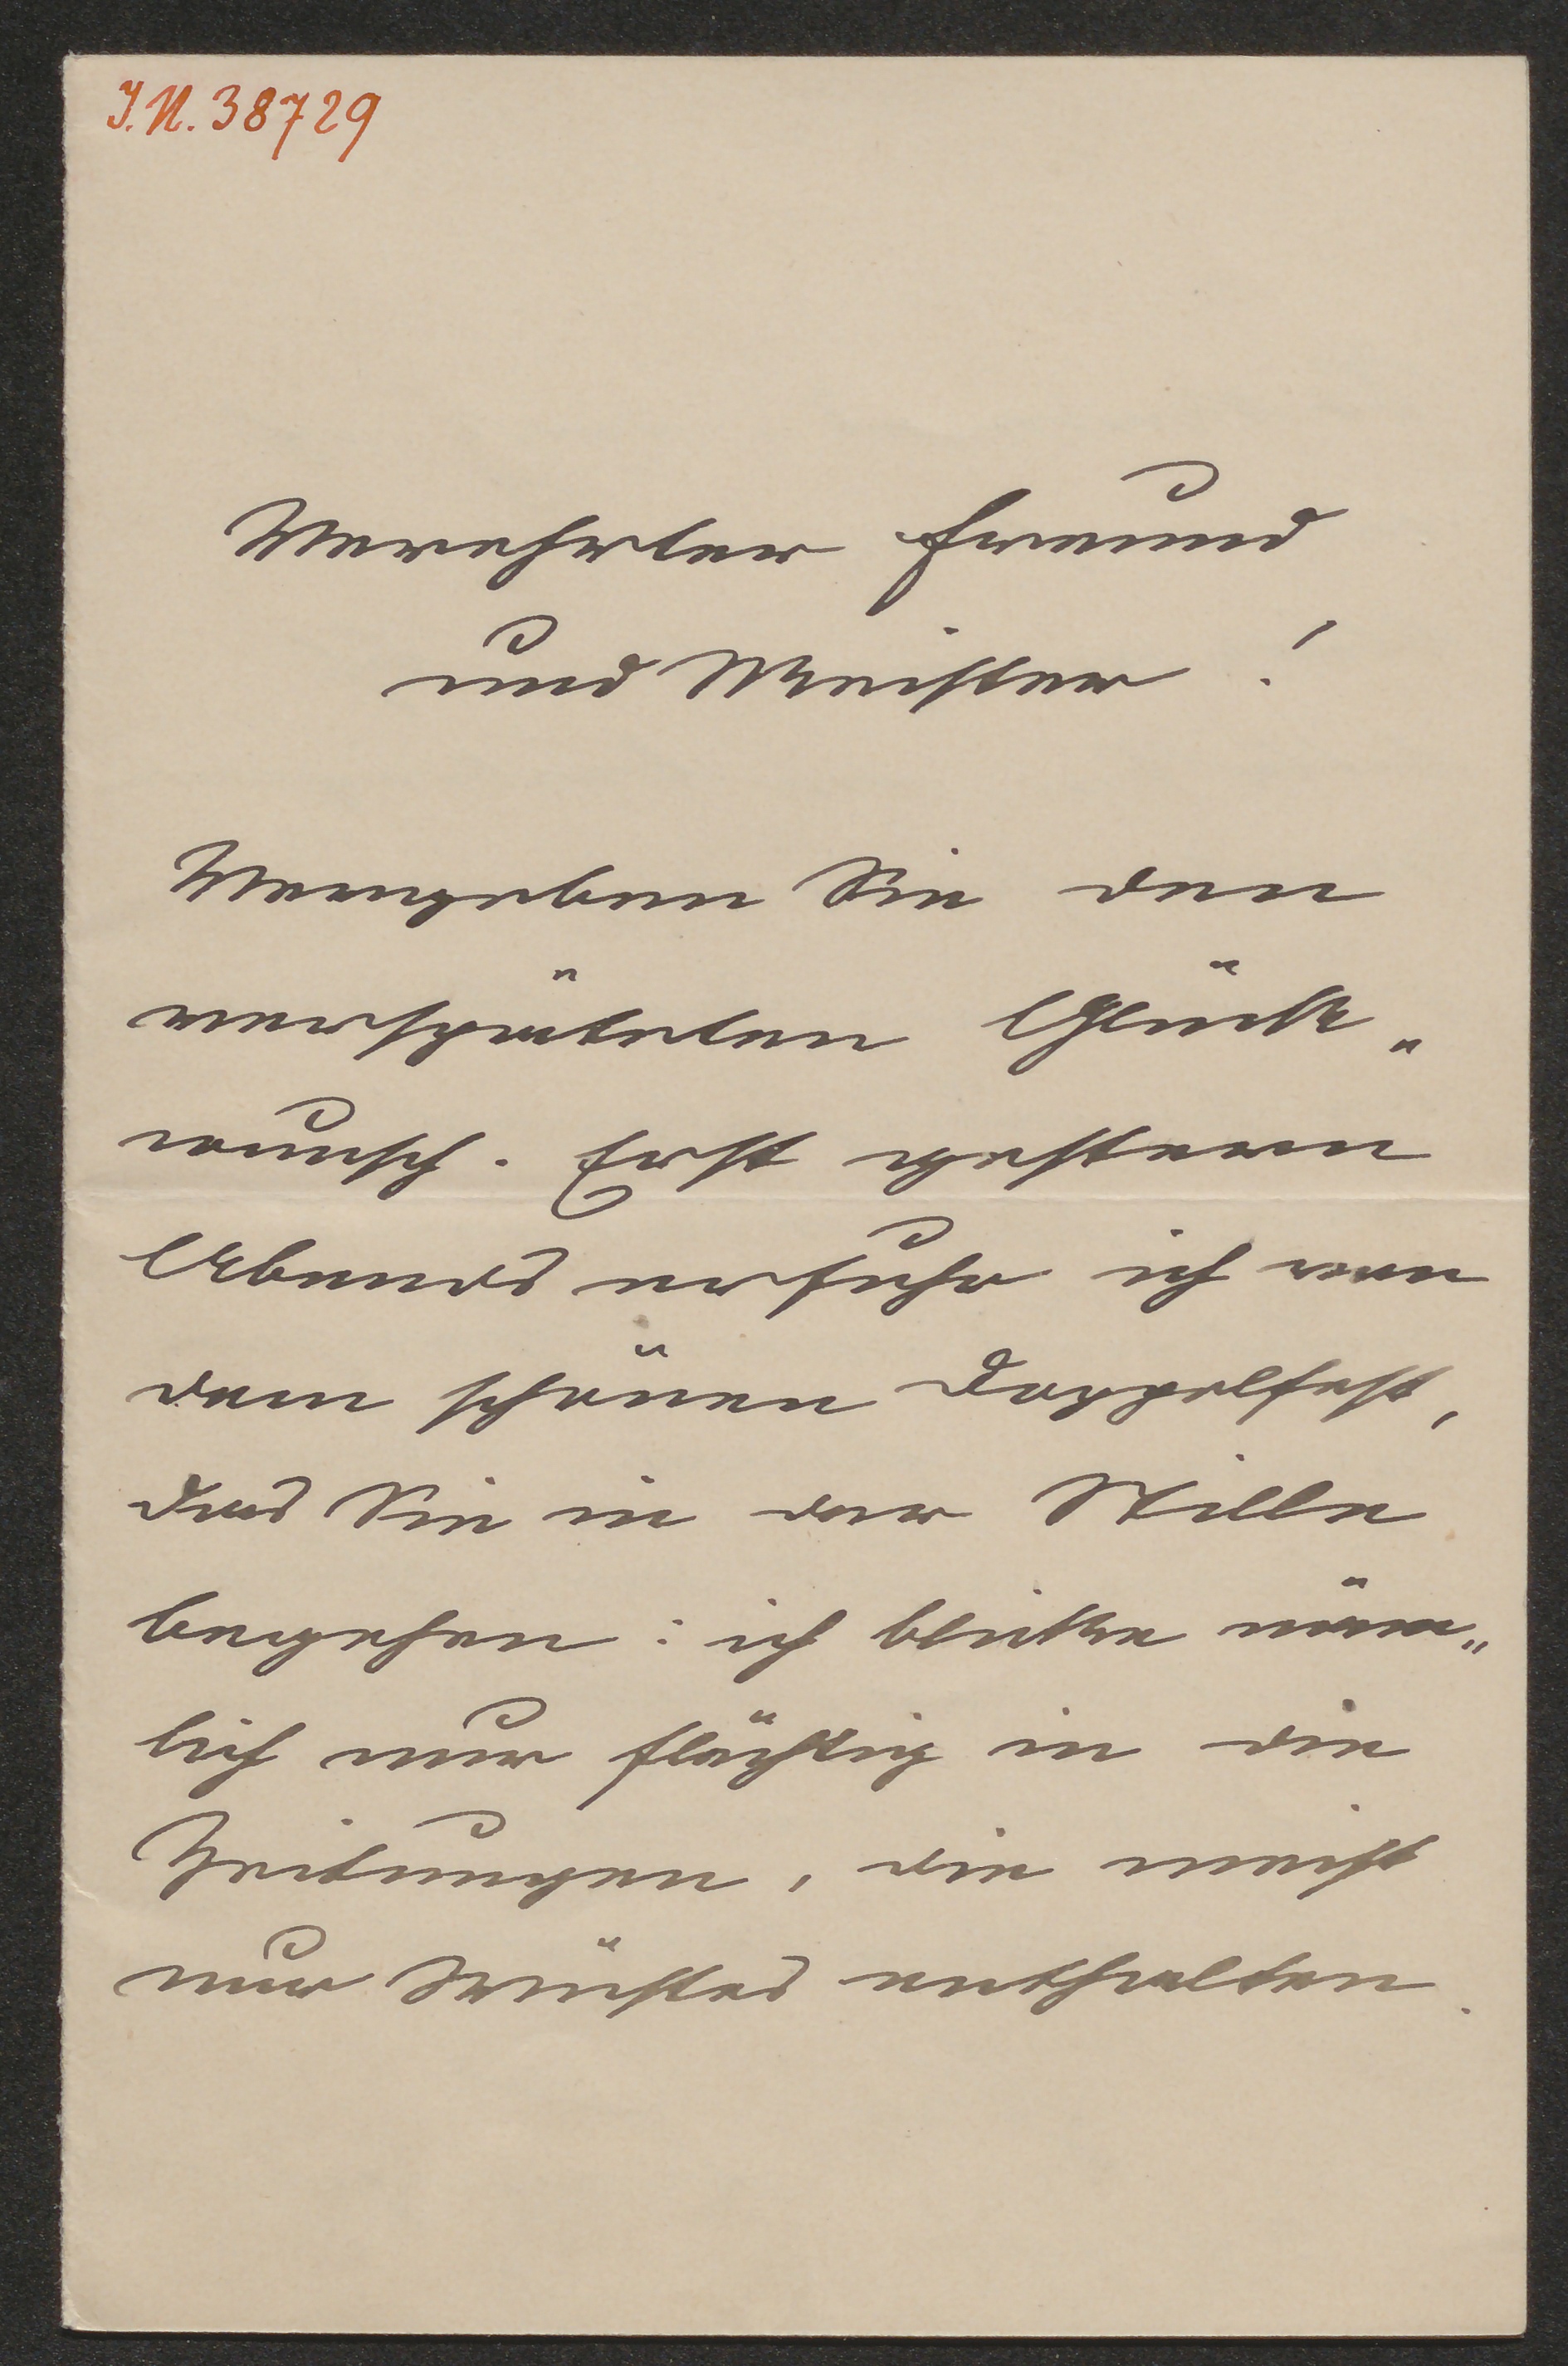 I.N. 38729
Verehrter Freund
und Meister!
Vergeben Sie den
verspäteten Glück„
wunsch. Erst gestern
Abends erfuhr ich von
dem schönen Doppelfest,
das Sie in der Stille
begehen: ich blicke näm„
lich nur flüchtig in die
Zeitungen, die meist
nur Wüstes enthalten.